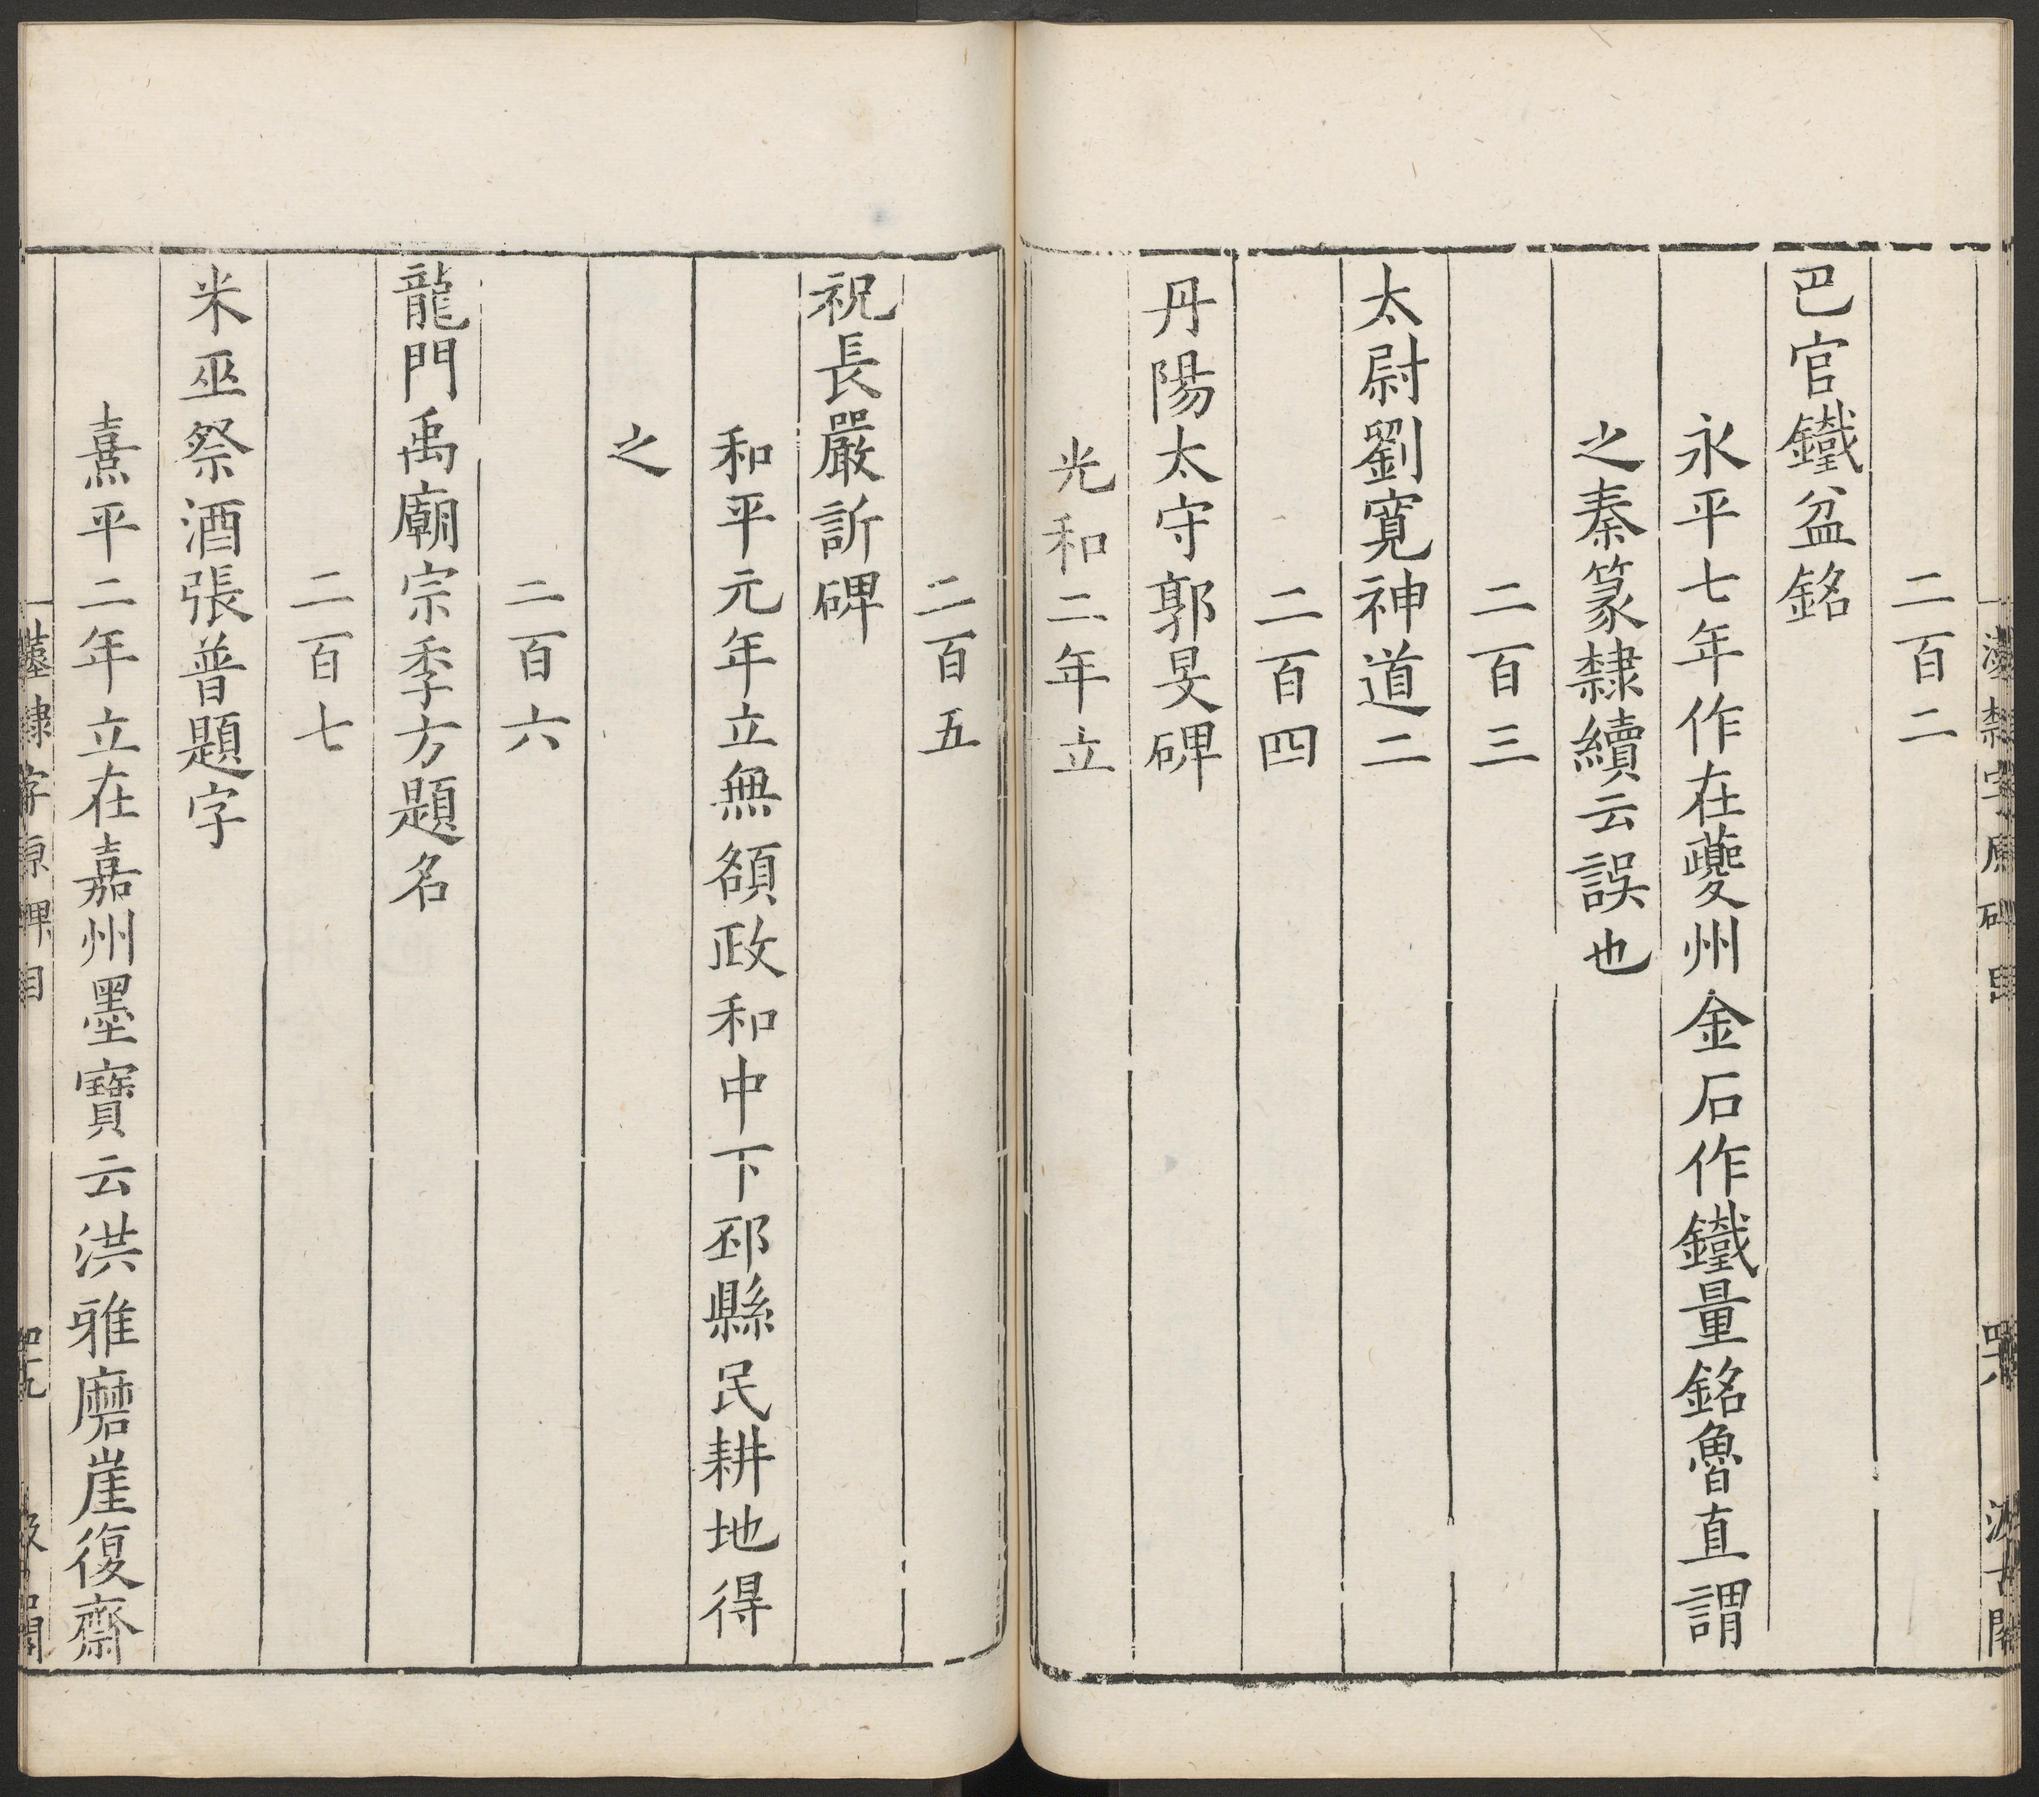 二百二
巴官鐵盆銘
永平七年作在夔州金石作鐵量銘魯直謂
之秦篆隸續云誤也
二百三
太尉劉寬神道二
二百四
丹陽太守郭旻碑
光和二年立
二百五
祝長嚴訢碑
和平元年立無額政和中下邳縣民耕地得
之
二百六
龍門禹廟宗季方題名
二百七
米巫祭酒張普題字
熹平二年立在嘉州墨寶云洪雅磨崖復齋